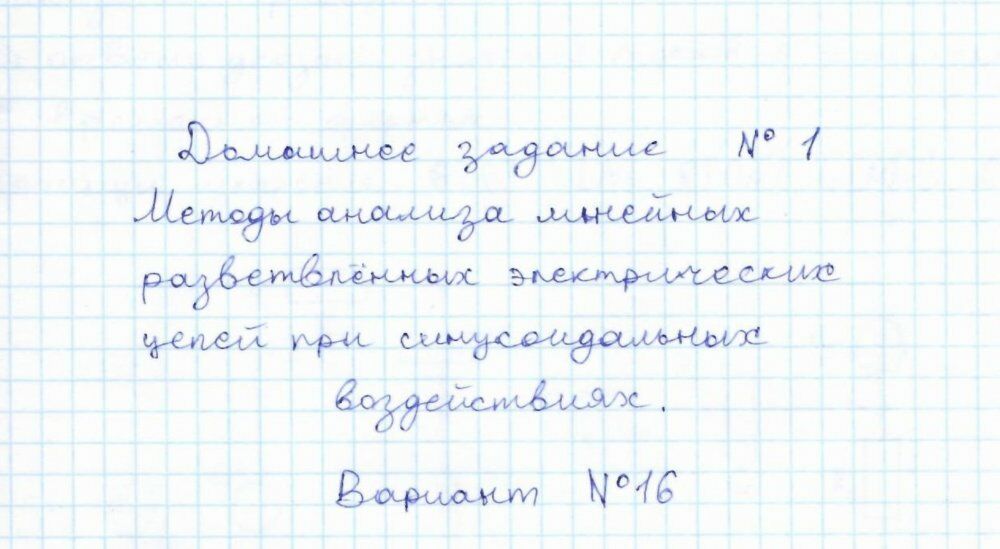 Домашнее задание № 1
Методы анализа линейных
разветвлённых электрических
цепей при синусоидальных
воздействиях.
Вариант №16